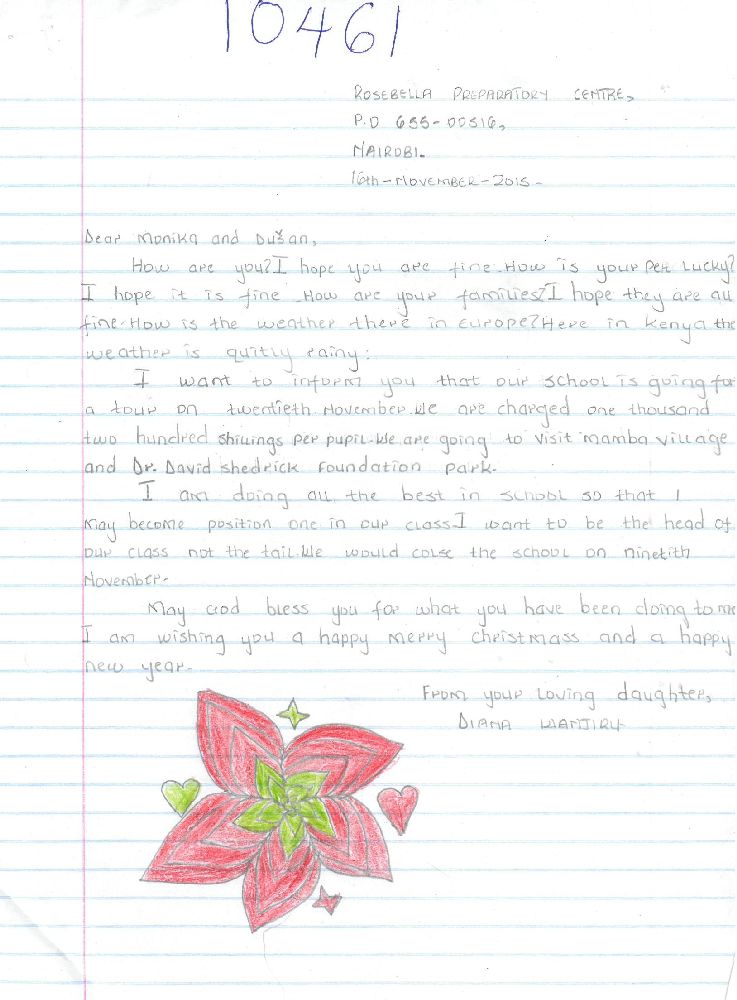 10461
ROSEBELLA PREPARATORY CENTRE,
P.O 655-00516,
NAIROBI.
16th-NOVEMBER-2015-
Dear Monika and Dušan,
How are you?I hope you are fine.How is your Pet Lucky?
I hope it is fine.How are your families?I hope they are all
fine.How is the weather there in Europe?Here in Kenya the
weather is quitly rainy:
I want to inform you that our school is going for
a tour on twentieth November.We are charged one thousand
two hundred shillings per pupil.We are going to visit mamba village
and Dr. David shedrick Foundation park.
I am doing all the best in school so that I
May become position one in our class.I want to be the head of
our class not the tail.We would colse the school on ninetith
November-
May God bless you for what you have been doing to me
I am wishing you a happy merry christmass and a happy
new year.
From your loving daughter,
DIANA WANJIRU